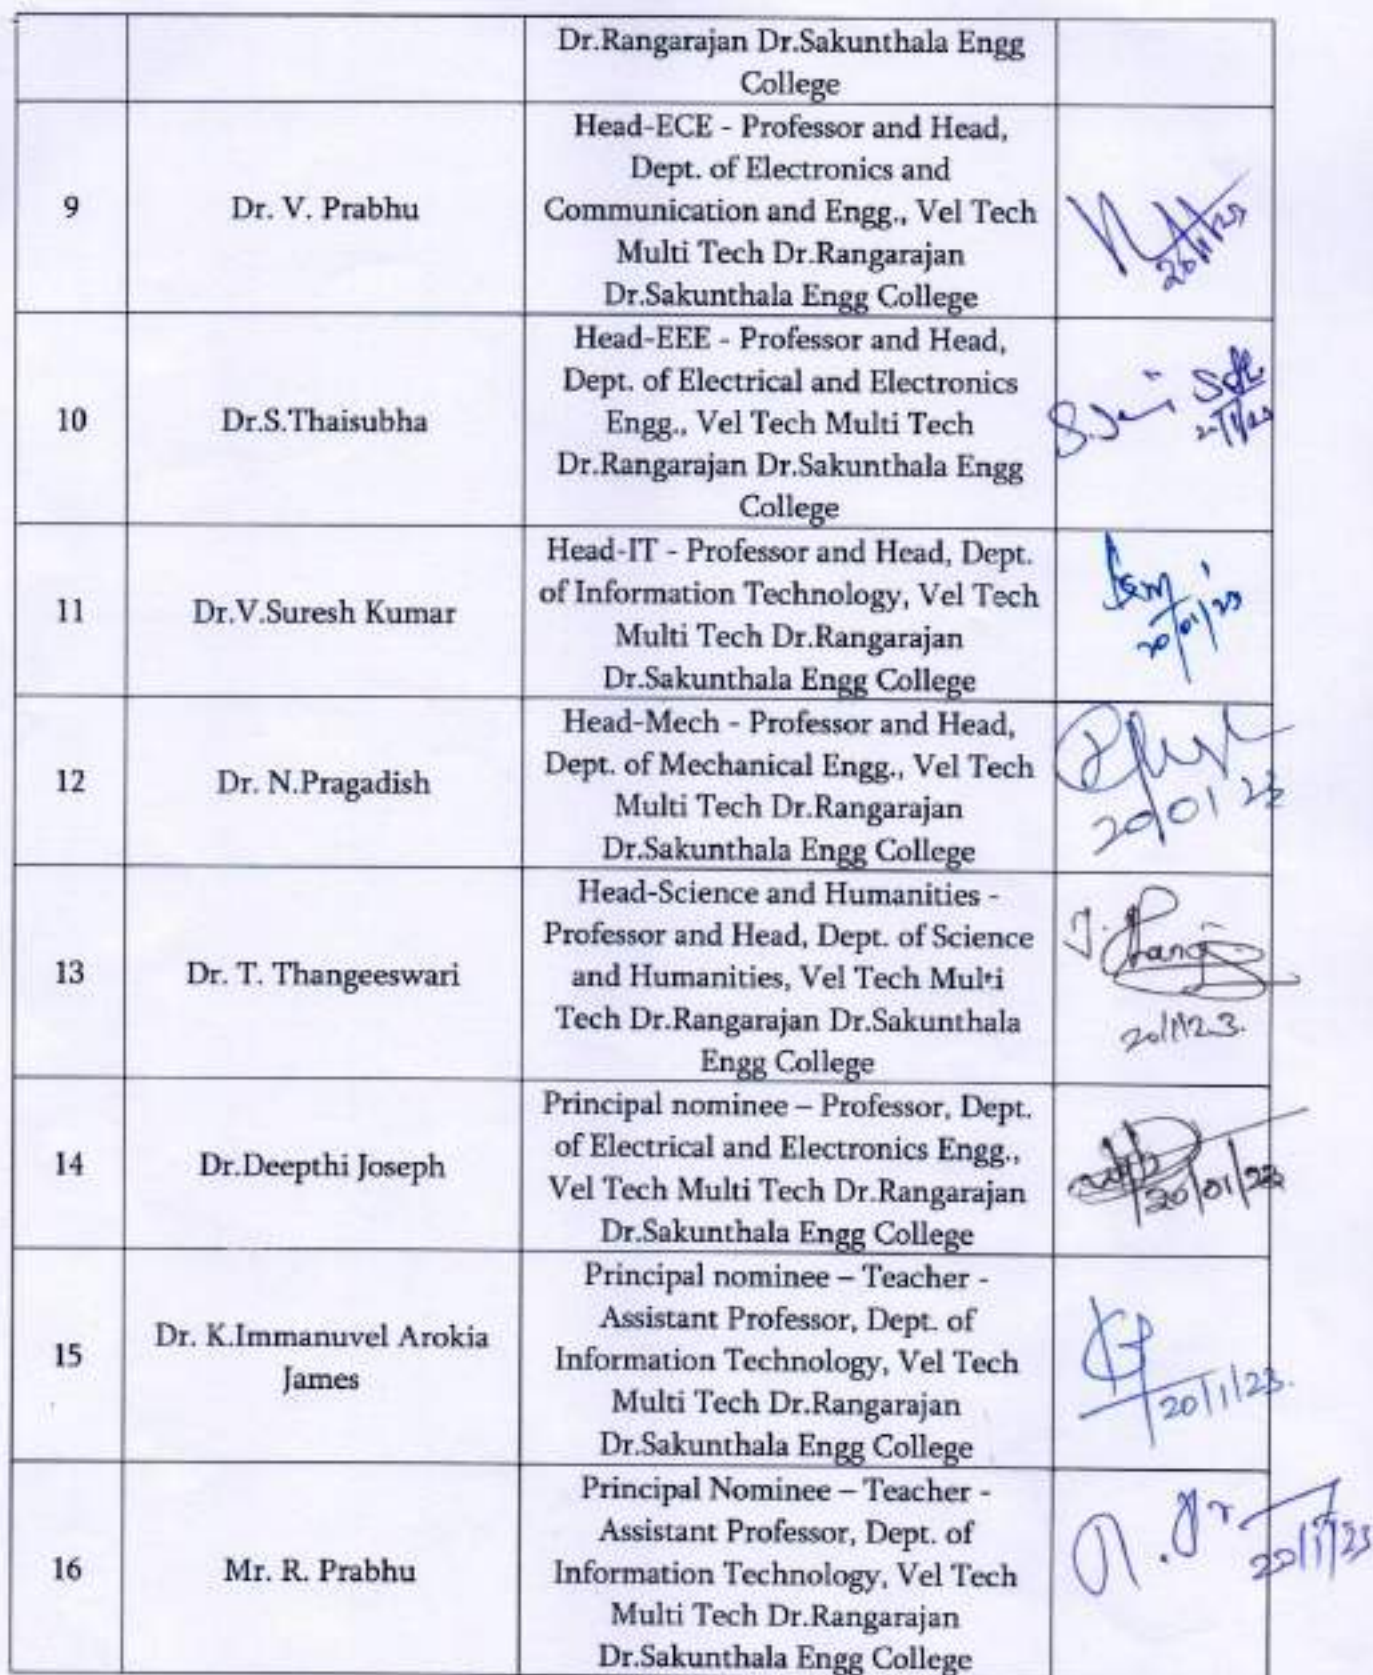 Dr.Rangarajan Dr.Sakunthala Engg
College
9
Dr. V. Prabhu
Head-ECE - Professor and Head,
Dept. of Electronics and
Communication and Engg., Vel Tech
Multi Tech Dr.Rangarajan
Dr.Sakunthala Engg College
20/1/23
10
Dr.S.Thaisubha
Head-EEE - Professor and Head,
Dept. of Electrical and Electronics
Engg., Vel Tech Multi Tech
Dr.Rangarajan Dr.Sakunthala Engg
College
11
Dr.V.Suresh Kumar
Head-IT - Professor and Head, Dept.
of Information Technology, Vel Tech
Multi Tech Dr.Rangarajan
Dr.Sakunthala Engg College
20/01/23
12
Dr. N.Pragadish
Head-Mech - Professor and Head,
Dept. of Mechanical Engg., Vel Tech
Multi Tech Dr.Rangarajan
Dr.Sakunthala Engg College
20/01/23
13
Dr. T. Thangeeswari
Head-Science and Humanities -
Professor and Head, Dept. of Science
and Humanities, Vel Tech Multi
Tech Dr.Rangarajan Dr.Sakunthala
Engg College
20/1/23.
14
Dr.Deepthi Joseph
Principal nominee – Professor, Dept.
of Electrical and Electronics Engg.,
Vel Tech Multi Tech Dr.Rangarajan
Dr.Sakunthala Engg College
20/01/23
15
Dr. K.Immanuvel Arokia
James
Principal nominee – Teacher -
Assistant Professor, Dept. of
Information Technology, Vel Tech
Multi Tech Dr.Rangarajan
Dr.Sakunthala Engg College
20/1/23.
16
Mr. R. Prabhu
Principal Nominee – Teacher -
Assistant Professor, Dept. of
Information Technology, Vel Tech
Multi Tech Dr.Rangarajan
Dr.Sakunthala Engg College
20/1/23